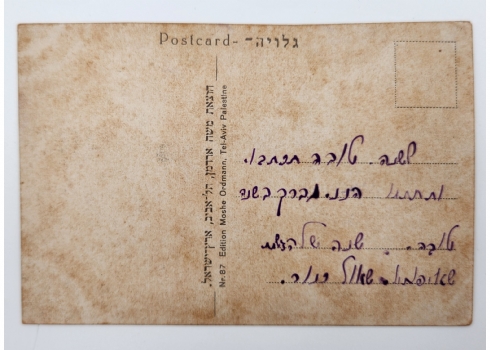 Postcard- -גלויה
הוצאת משה אורדמן, תל-אביב, ארץ-ישראל.
Nr. 87 Edition Moshe Ordmann, Tel-Aviv Palestine
לשנה טובה תכתבו
ותחתמו הנני מברך בשנה
טובה. שנה של הגשמת